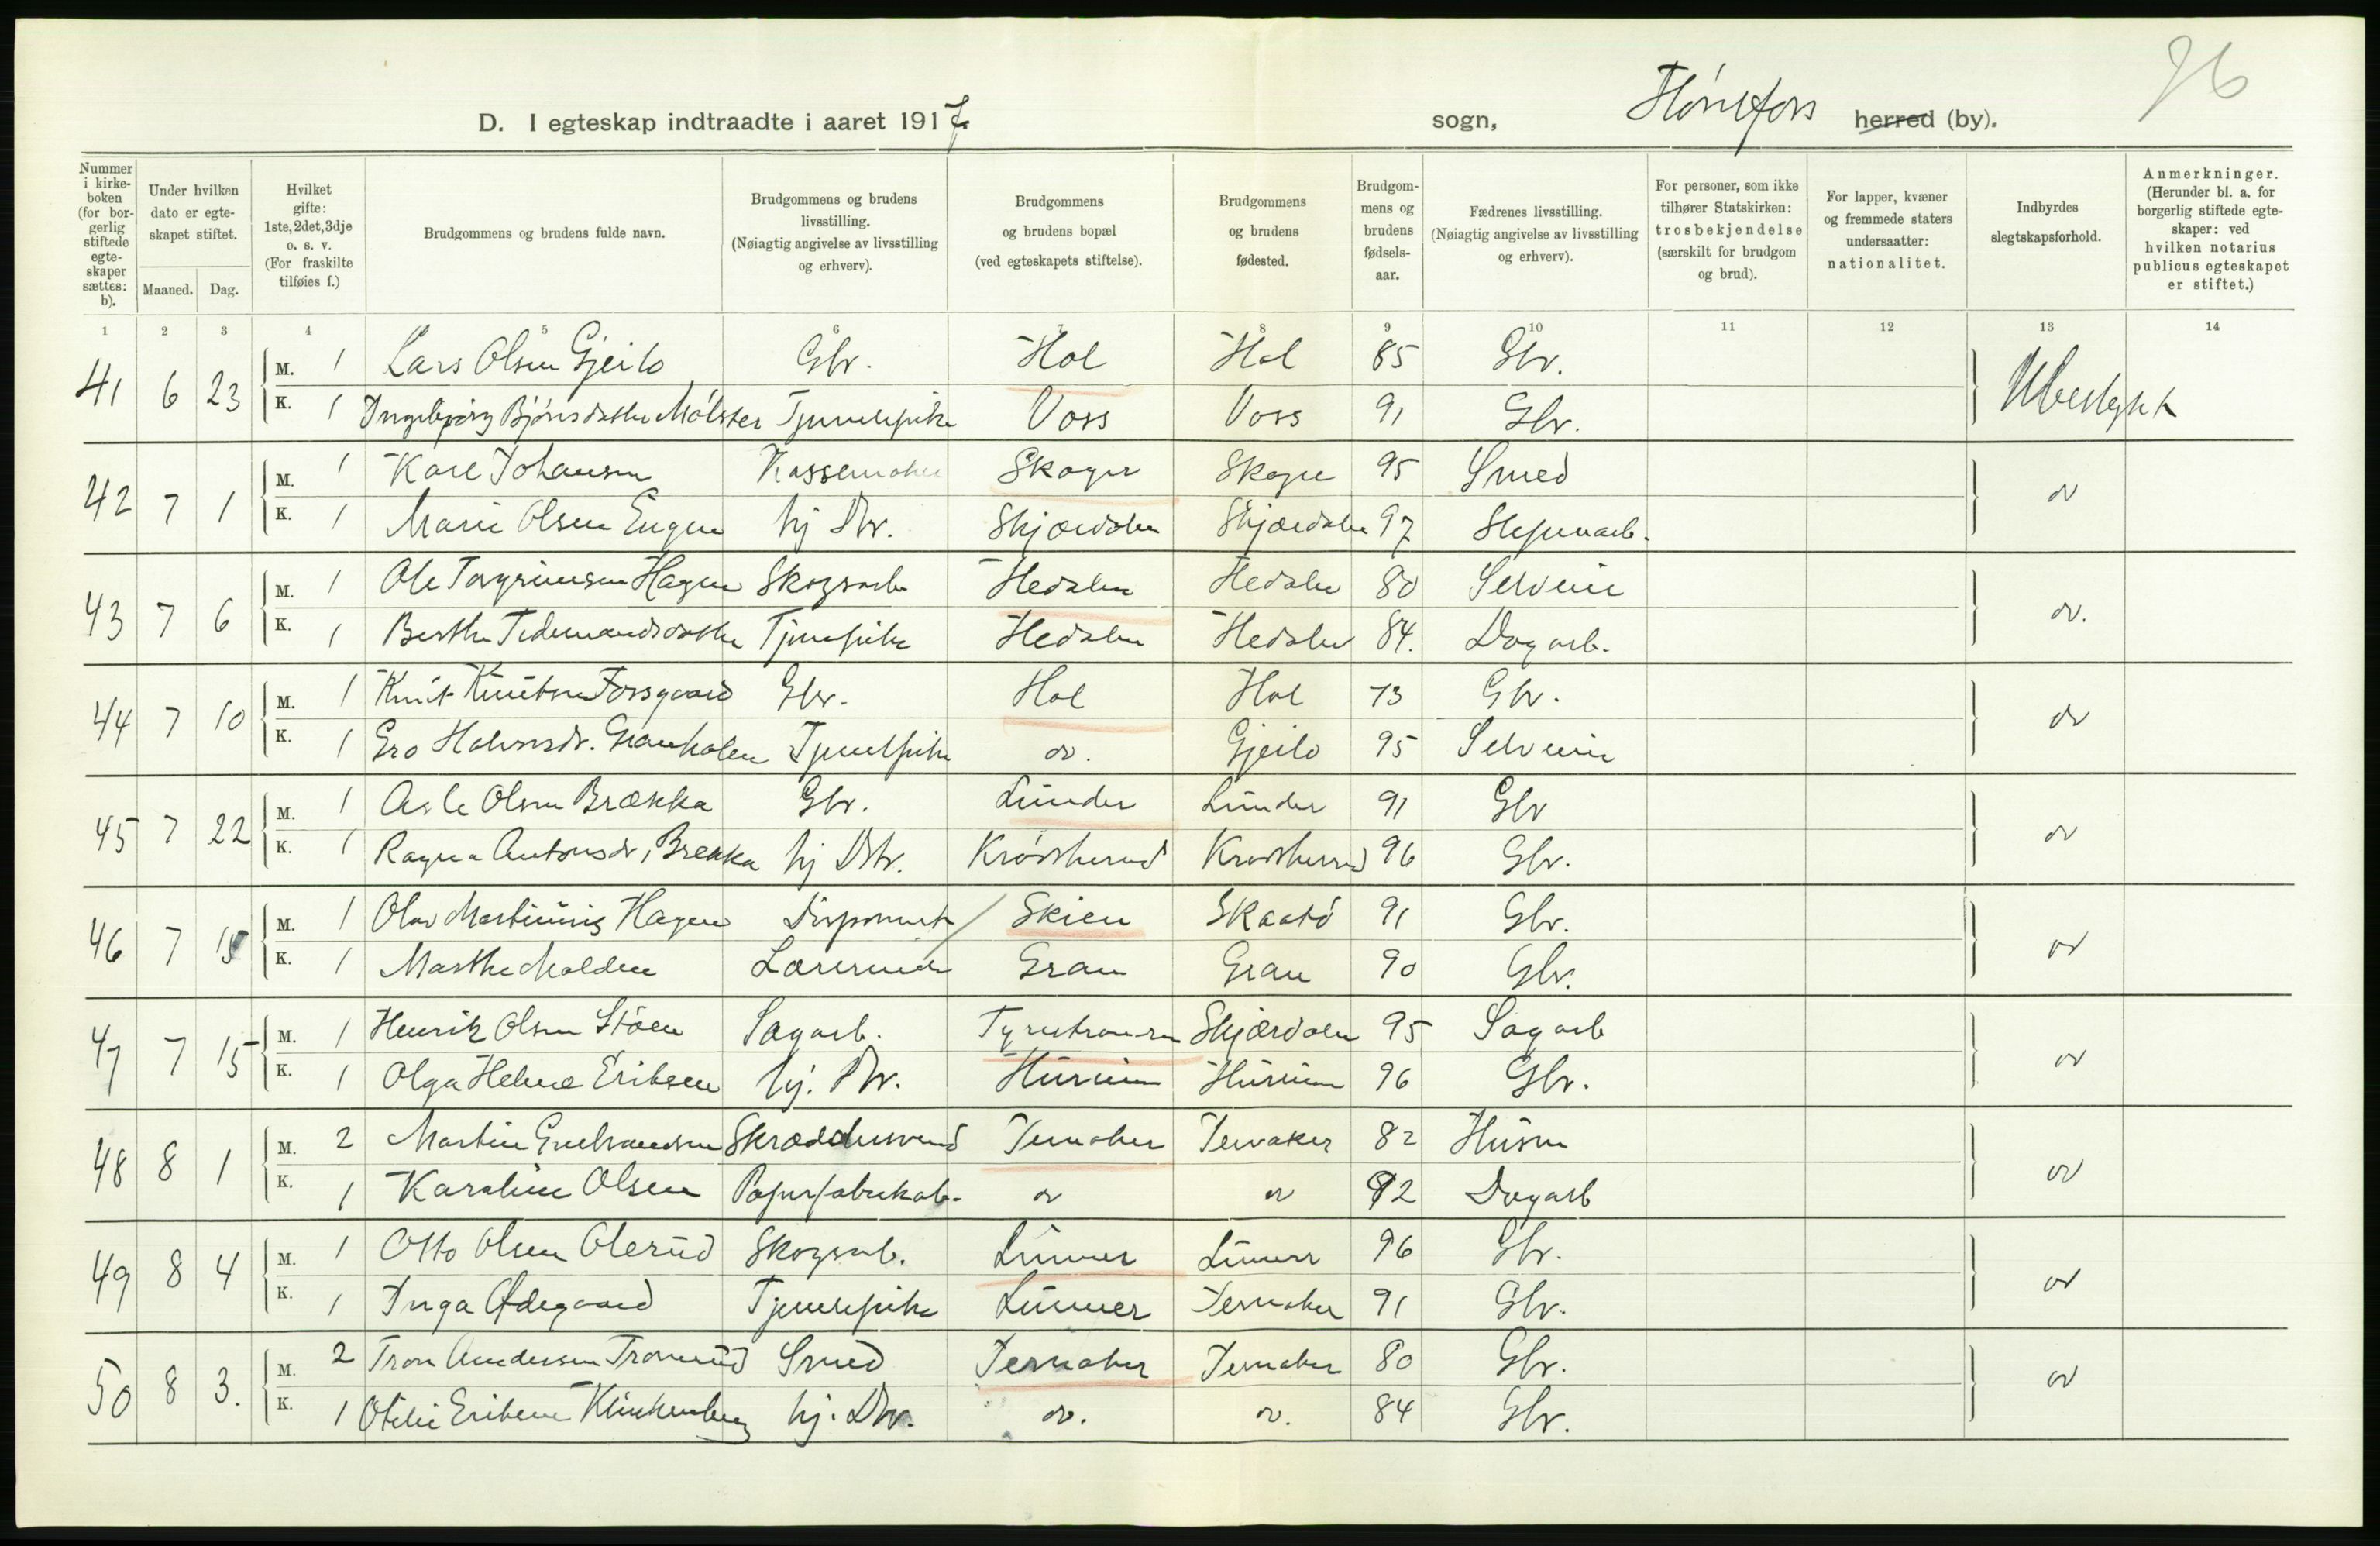 26
D. I egteskap indtraadte i aaret 1917 sogn, Hönefoss herred (by).
Nummer i kirkeboken (for borgerlig stiftede egteskaper sættes: b).
Under hvilken dato er egteskapet stiftet.
Maaned. Dag.
Hvilket gifte: 1ste, 2det, 3dje o. s. v. (For fraskilte tilføies f.)
Brudgommens og brudens fulde navn.
Brudgommens og brudens livsstilling. (Nøiagtig angivelse av livsstilling og erhverv).
Brudgommens og brudens bopæl (ved egteskapets stiftelse).
Brudgommens og brudens fødested.
Brudgommens og brudens fødselsaar.
Fædrenes livsstilling. (Nøiagtig angivelse av livsstilling og erhverv).
For personer, som ikke tilhører Statskirken: trosbekjendelse (særskilt for brudgom og brud).
For lapper, kvæner og fremmede staters undersaatter: nationalitet.
Indbyrdes slegtskapsforhold.
Anmerkninger. (Herunder bl. a. for borgerlig stiftede egteskaper: ved hvilken notarius publicus egteskapet er stiftet.)
1 2 3 4 5 6 7 8 9 10 11 12 13 14
41 6 23 M. 1 Lars Olsen Gjeilo Gbr. Hol Hol 85 Gbr. Ubeslegtet
K. 1 Ingebjörg Björnsdatter Mölster Tjenestepike Voss Voss 91 Gbr.
42 7 1 M. 1 Karl Johansen Kassemaker Skoger Skoger 95 Smed do
K. 1 Marie Olsen Engen hj Dtr. Skjærdalen Skjærdalen 97 Sliperiarb.
43 7 6 M. 1 Ole Torgrimsen Hagen Skogsarb Hedalen Hedalen 80 Selveier do.
K. 1 Berthe Tidemandsdatter Tjenestepike Hedalen Hedalen 84. Dagarb.
44 7 10 M. 1 Knut Knutsen Forsgaard Gbr. Hol Hol 73 Gbr. do
K. 1 Gro Halvorsdr. Granholen Tjenestepike do. Gjeilo 95 Selveier
45 7 22 M. 1 Asle Olsen Brækka Gbr. Lunder Lunder 91 Gbr do
K. 1 Ragna Antonsdr, Brekka hj Dtr. Krödsherad Krödsherad 96 Gbr.
46 7 15 M. 1 Olav Martinius Hagen Disponent Skien Skaatö 91 Gbr. do
K. 1 Marthe Molden Lærerinde Gran Gran 90 Gbr.
47 7 15 M. 1 Henrik Olsen Stöen Sagarb. Tyristranden Skjærdalen 95 Sagarb do
K. 1 Olga Helene Eriksen hj. Dtr. Hurum Hurum 96 Gbr.
48 8 1 M. 2 Martin Gulbrandsen Skræddersvend Jevnaker Jevnaker 82 Husm do
K. 1 Karoline Olsen Papirfabrikarb. do do 92 Dagarb
49 8 4 M. 1 Otto Olsen Olerud Skogsarb. Lunner Lunner 96 Gbr. do
K. 1 Inga Ødegaard Tjenestepike Lunner Jevnaker 91 Gbr.
50 8 3. M. 2 Tron Andersen Tronrud Smed Jevnaker Jevnaker 80 Gbr. do
K. 1 Otilie Eriksen Klinkenberg hj. Dtr. do. do. 84 Gbr.